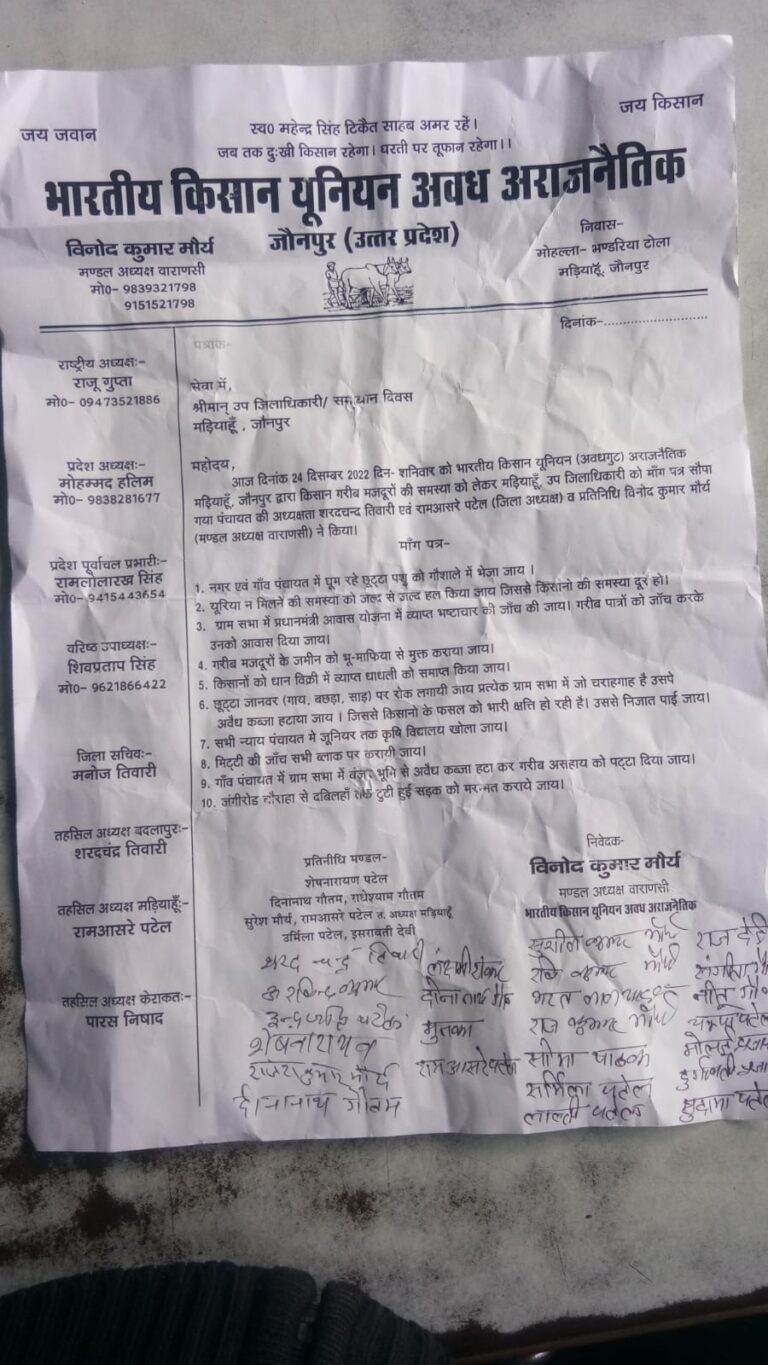 जय जवान
जय किसान
स्व0 महेन्द्र सिंह टिकैत साहब अमर रहें।
जब तक दुःखी किसान रहेगा। धरती पर तूफान रहेगा।।
भारतीय किसान यूनियन अवध अराजनैतिक
जौनपुर (उत्तर प्रदेश)
विनोद कुमार मौर्य
मण्डल अध्यक्ष वाराणसी
मो0- 9839321798
9151521798
निवास-
मोहल्ला- भण्डरिया टोला
मड़ियाहूँ, जौनपुर
दिनांक-..........................
पत्रांक-
राष्ट्रीय अध्यक्षः-
राजू गुप्ता
मो0- 09473521886
प्रदेश अध्यक्षः-
मोहम्मद हलिम
मो0- 9838281677
प्रदेश पूर्वांचल प्रभारीः-
रामलोलारख सिंह
मो0- 9415443654
वरिष्ठ उपाध्यक्षः-
शिवप्रताप सिंह
मो0- 9621866422
जिला सचिवः-
मनोज तिवारी
तहसिल अध्यक्ष बदलापुरः-
शरदचंद्र तिवारी
तहसिल अध्यक्ष मड़ियाहूँः-
रामआसरे पटेल
तहसिल अध्यक्ष केराकतः-
पारस निषाद
सेवा में,
श्रीमान् उप जिलाधिकारी/ समाधान दिवस
मड़ियाहूँ , जौनपुर
महोदय,
आज दिनांक 24 दिसम्बर 2022 दिन- शनिवार को भारतीय किसान यूनियन (अवधगुट) अराजनैतिक
मड़ियाहूँ, जौनपुर द्वारा किसान गरीब मजदूरों की समस्या को लेकर मड़ियाहूँ, उप जिलाधिकारी को माँग पत्र सौपा
गया पंचायत की अध्यक्षता शरदचन्द तिवारी एवं रामआसरे पटेल (जिला अध्यक्ष) व प्रतिनिधि विनोद कुमार मौर्य
(मण्डल अध्यक्ष वाराणसी) ने किया।
माँग पत्र-
1. नगर एवं गाँव पंचायत में घूम रहे छूट्टा पशु को गौशाले में भेज़ा जाय ।
2. यूरिया न मिलने की समस्या को जल्द से जल्द हल किया जाय जिससे किसानो की समस्या दूर हो।
3. ग्राम सभा में प्रधानमंत्री आवास योजना में व्याप्त भष्टाचार की जाँच की जाय। गरीब पात्रों को जाँच करके
उनको आवास दिया जाय।
4. गरीब मजदूरों के जमीन को भू-माफिया से मुक्त कराया जाय।
5. किसानों को धान विक्री में व्याप्त धाधली को समाप्त किया जाय।
6. छूट्टा जानवर (गाय, बछड़ा, साड़) पर रोक लगायी जाय प्रत्येक ग्राम सभा में जो चरागहाह है उसपे
अवैध कब्जा हटाया जाय । जिससे किसानो के फसल को भारी क्षति हो रही है। उससे निजात पाई जाय।
7. सभी न्याय पंचायत मे जूनियर तक कृषि विद्यालय खोला जाय।
8. मिट्टी की जाँच सभी ब्लाक पर करायी जाय।
9. गाँव पंचायत में ग्राम सभा में बंजर भूमि से अवैध कब्जा हटा कर गरीब असहाय को पट्टा दिया जाय।
10. जंगीरोड चौराहा से दबिलहाँ तक टुटी हुई सड़क को मरम्मत कराये जाय।
प्रतिनीधि मण्डल-
शेषनारायण पटेल
दिनानाथ गौतम, राधेश्याम गौतम
सुरेश मौर्य, रामआसरे पटेल त. अध्यक्ष मड़ियाहूँ
उर्मिला पटेल, इसरावती देवी
निवेदक-
विनोद कुमार मौर्य
मण्डल अध्यक्ष वाराणसी
भारतीय किसान यूनियन अवध अराजनैतिक
शरद चन्द्र तिवारी
लक्ष्मीशंकर
सुशील कुमार मौर्य
राज देवी
दीनानाथ
शेषनारायन
मुनका
राज कुमार मौर्य
रामआसरे पटेल
सीमा पाठक
दीनानाथ गौतम
उर्मिला पटेल
लालती पटेल